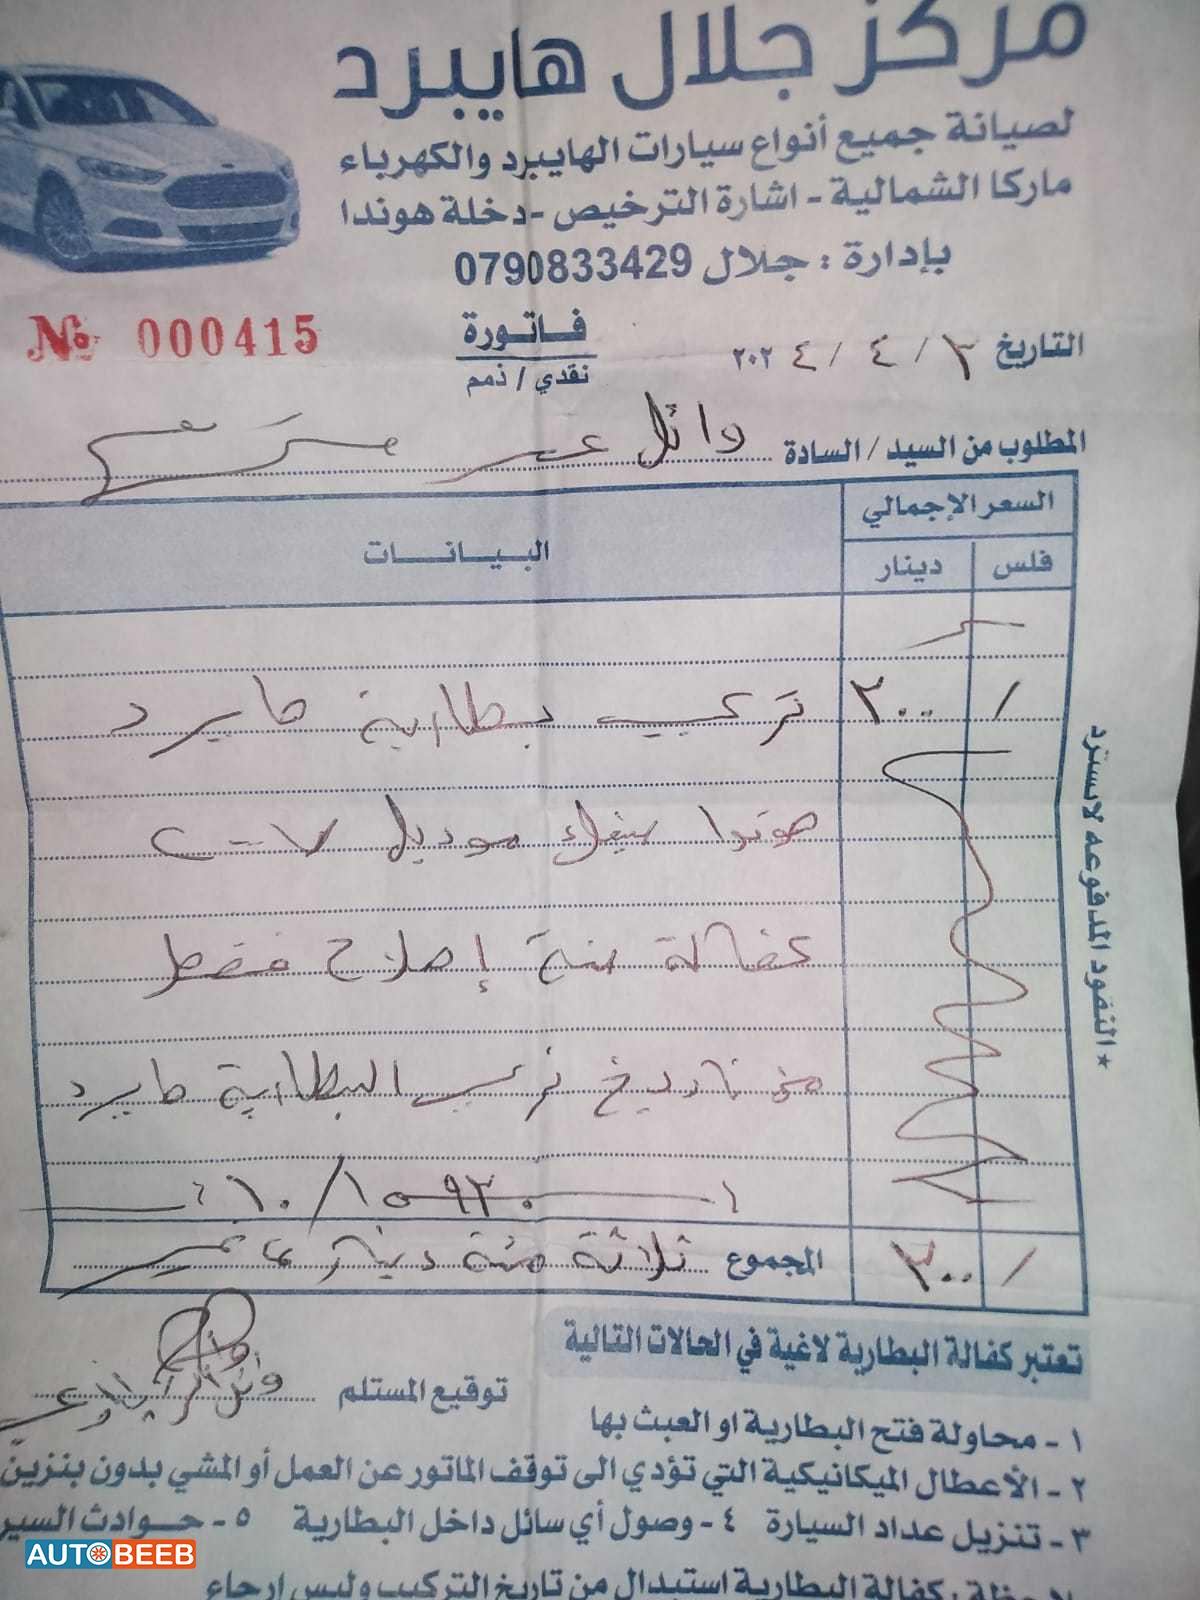 مركز جلال هايبرد
لصيانة جميع أنواع سيارات الهايبرد والكهرباء
ماركا الشمالية - اشارة الترخيص - دخلة هوندا
بإدارة : جلال 0790833429
№ 000415
فاتورة
نقدي / ذمم
التاريخ ٣ / ٤ / ٢٠٢٤
المطلوب من السيد / السادة وائل
السعر الإجمالي
فلس دينار البيانات
/ ٣٠٠ تركيب بطارية هايبرد
هوندا سيفك موديل
كفالة سنة إصلاح فقط
من تاريخ تركيب البطارية هايبرد
المجموع ثلاثة مئة دينار / ٣٠٠
* النقود المدفوعه لاتسترد
تعتبر كفالة البطارية لاغية في الحالات التالية
توقيع المستلم
١ - محاولة فتح البطارية او العبث بها
٢ - الأعطال الميكانيكية التي تؤدي الى توقف الماتور عن العمل أو المشي بدون بنزين
٣ - تنزيل عداد السيارة ٤ - وصول أي سائل داخل البطارية ٥ - حوادث السير
كفالة البطارية استبدال من تاريخ التركيب وليس ارجاع
AUTOBEEB